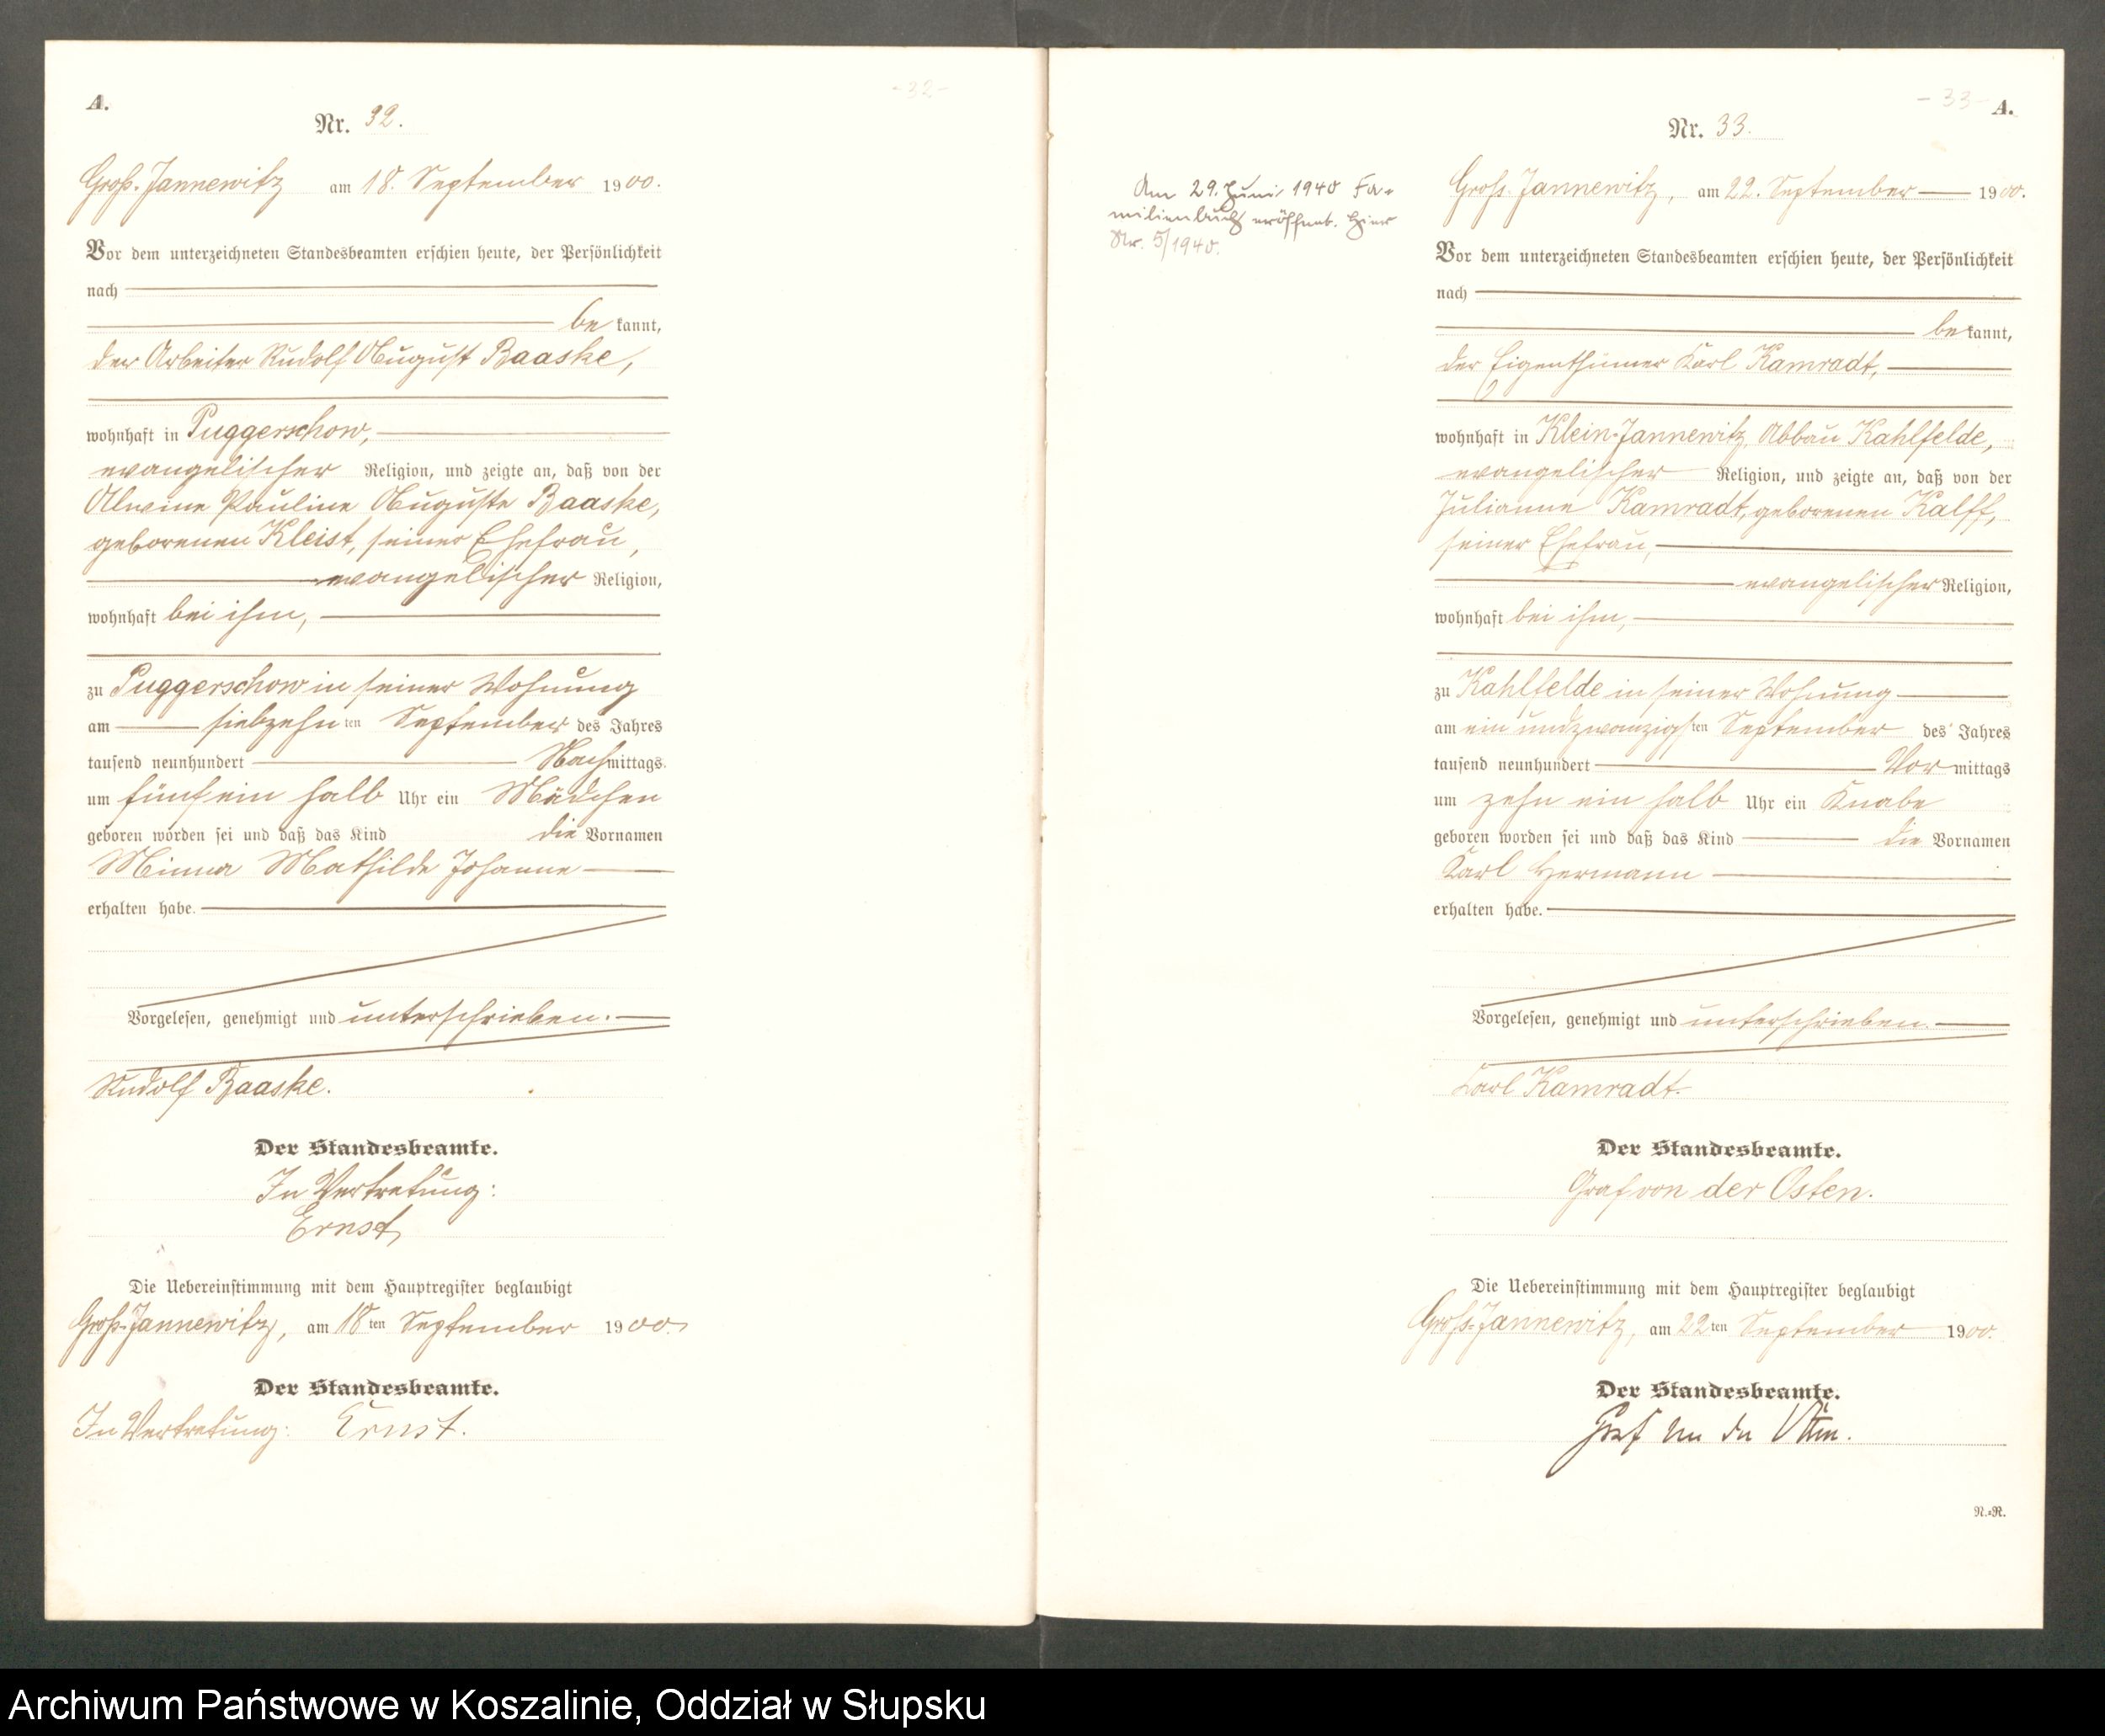 A.
-32-
Nr. 32.
Groß-Jannewitz am 18. September 1900.
Vor dem unterzeichneten Standesbeamten erschien heute, der Persönlichkeit
nach
be kannt,
der Arbeiter Rudolf August Baaske,
wohnhaft in Puggerschow,
evangelischer Religion, und zeigte an, daß von der
Alwine Pauline Auguste Baaske,
geborenen Kleist, seiner Ehefrau,
evangelischer Religion,
wohnhaft bei ihm,
zu Puggerschow in seiner Wohnung
am siebzehn ten September des Jahres
tausend neunhundert Nachmittags
um fünf ein halb Uhr ein Mädchen
geboren worden sei und daß das Kind die Vornamen
Minna Mathilde Johanne
erhalten habe.
Vorgelesen, genehmigt und unterschrieben.
Rudolf Baaske.
Der Standesbeamte.
In Vertretung:
Ernst
Die Uebereinstimmung mit dem Hauptregister beglaubigt
Groß-Jannewitz, am 18ten September 1900.
Der Standesbeamte.
In Vertretung: Ernst.
-33-
A.
Nr. 33.
Am 29. Juni 1940 Fa-
milienbuch eröffnet. Hier
Nr. 5/1940.
Groß-Jannewitz, am 22. September 1900.
Vor dem unterzeichneten Standesbeamten erschien heute, der Persönlichkeit
nach
be kannt,
der Eigenthümer Karl Kamradt,
wohnhaft in Klein-Jannewitz, Abbau Kahlfelde,
evangelischer Religion, und zeigte an, daß von der
Julianne Kamradt, geborenen Kalff,
seiner Ehefrau,
evangelischer Religion,
wohnhaft bei ihm,
zu Kahlfelde in seiner Wohnung
am ein und zwanzigsten September des Jahres
tausend neunhundert Vor mittags
um zehn ein halb Uhr ein Knabe
geboren worden sei und daß das Kind die Vornamen
Karl Hermann
erhalten habe.
Vorgelesen, genehmigt und unterschrieben.
Karl Kamradt.
Der Standesbeamte.
Graf von der Osten.
Die Uebereinstimmung mit dem Hauptregister beglaubigt
Groß-Jannewitz, am 22ten September 1900.
Der Standesbeamte.
Graf von der Osten.
N.=R.
Archiwum Państwowe w Koszalinie, Oddział w Słupsku